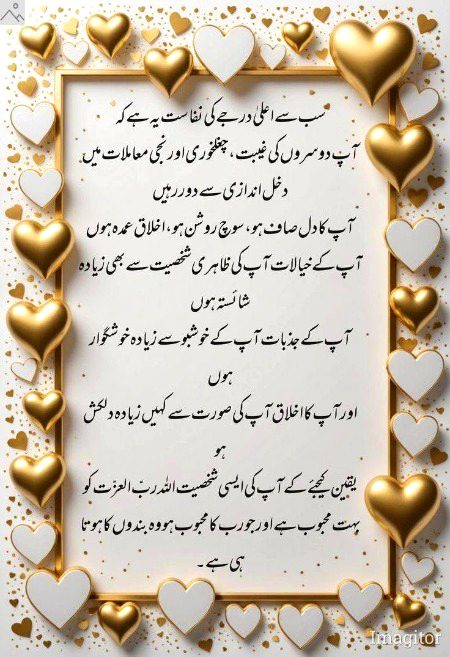 سب سے اعلیٰ درجے کی نفاست یہ ہے کہ
آپ دوسروں کی غیبت، چغلخوری اور نجی معاملات میں
دخل اندازی سے دور رہیں
آپ کا دل صاف ہو، سوچ روشن ہو، اخلاق عمدہ ہوں
آپ کے خیالات آپ کی ظاہری شخصیت سے بھی زیادہ
شائستہ ہوں
آپ کے جذبات آپ کے خوشبو سے زیادہ خوشگوار
ہوں
اور آپ کا اخلاق آپ کی صورت سے کہیں زیادہ دلکش
ہو
یقین کیجئے کے آپ کی ایسی شخصیت اللہ ربّ العزّت کو
بہت محبوب ہے اور جو رب کا محبوب ہو وہ بندوں کا ہوتا
ہی ہے۔
Imagitor